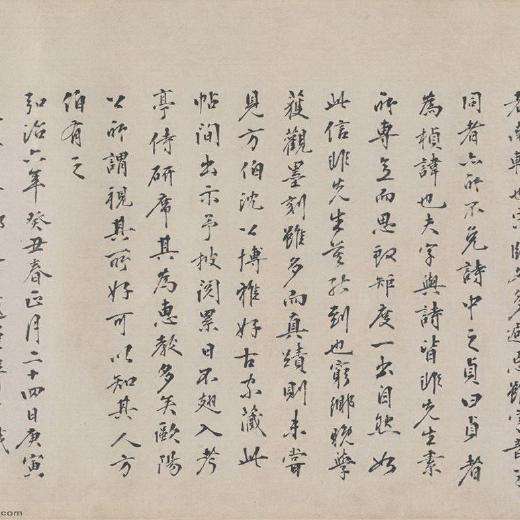 同者亦所不免詩中之貞曰貞者
為楨諱也夫字與詩皆非先生素
所專意而思致矩度一出自然如
此信非先生莫能到也窮鄉晚學
獲觀墨刻雖多而真蹟則未嘗
見方伯沈公博雅好古家藏此
帖間出示予披閱累日不翅入考
亭侍研席其為惠教多矣歐陽
公所謂視其所好可以知其人方
伯有之
弘治六年癸丑春正月二十四日庚寅